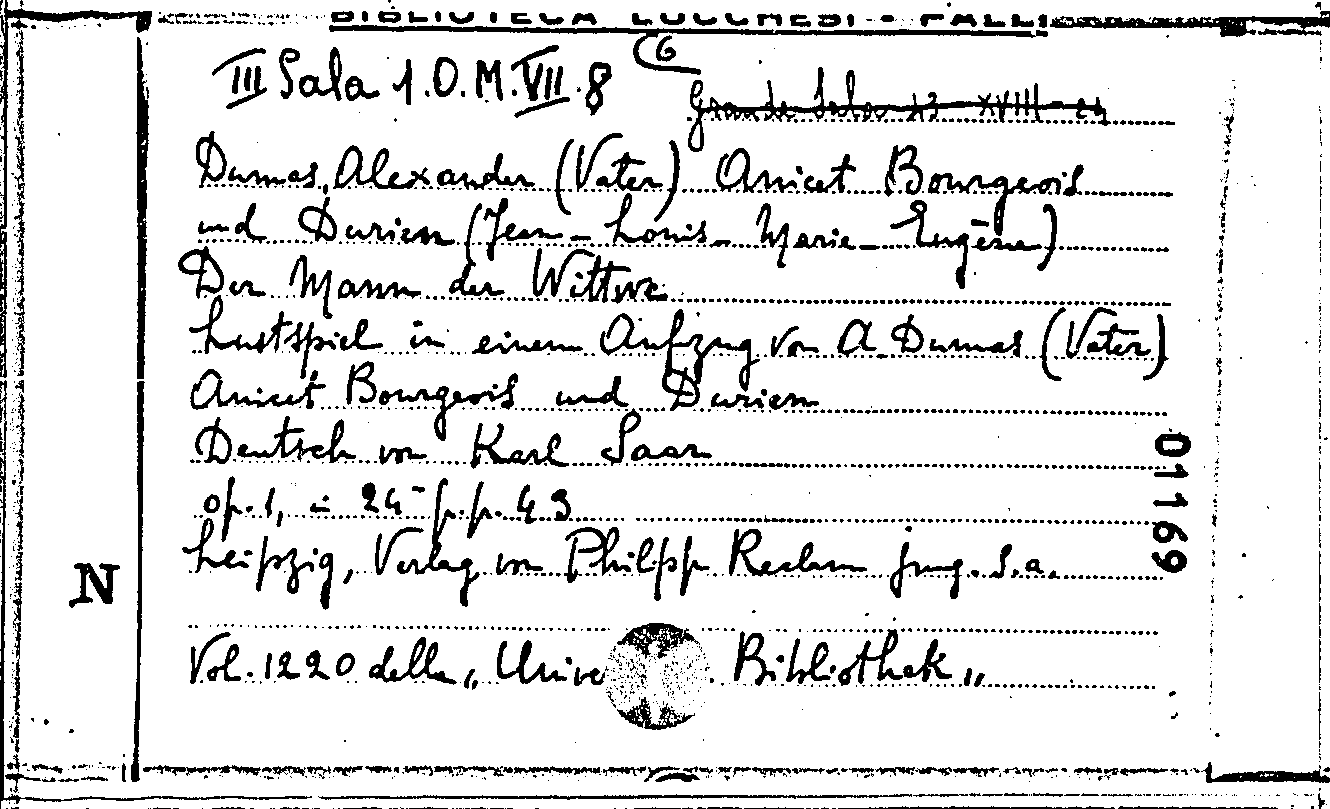 BIBLIOTECA LUCCHESI - PALLI
III Sala 1.O.M.VII.8 (6
Grande Sala 23 XVIII 24
Dumas, Alexander (Vater) Anicet Bourgeois
und Durieu (Jean-Louis-Marie-Eugène)
Der Mann der Wittwe
Lustspiel in einem Aufzug von A. Dumas (Vater)
Anicet Bourgeois und Durieu
Deutsch von Karl Saar
op. 1, in 24° p.p. 43
Leipzig, Verlag von Philipp Reclam jung. s.a.
Vol. 1220 della „Unive Bibliothek„
N
01169